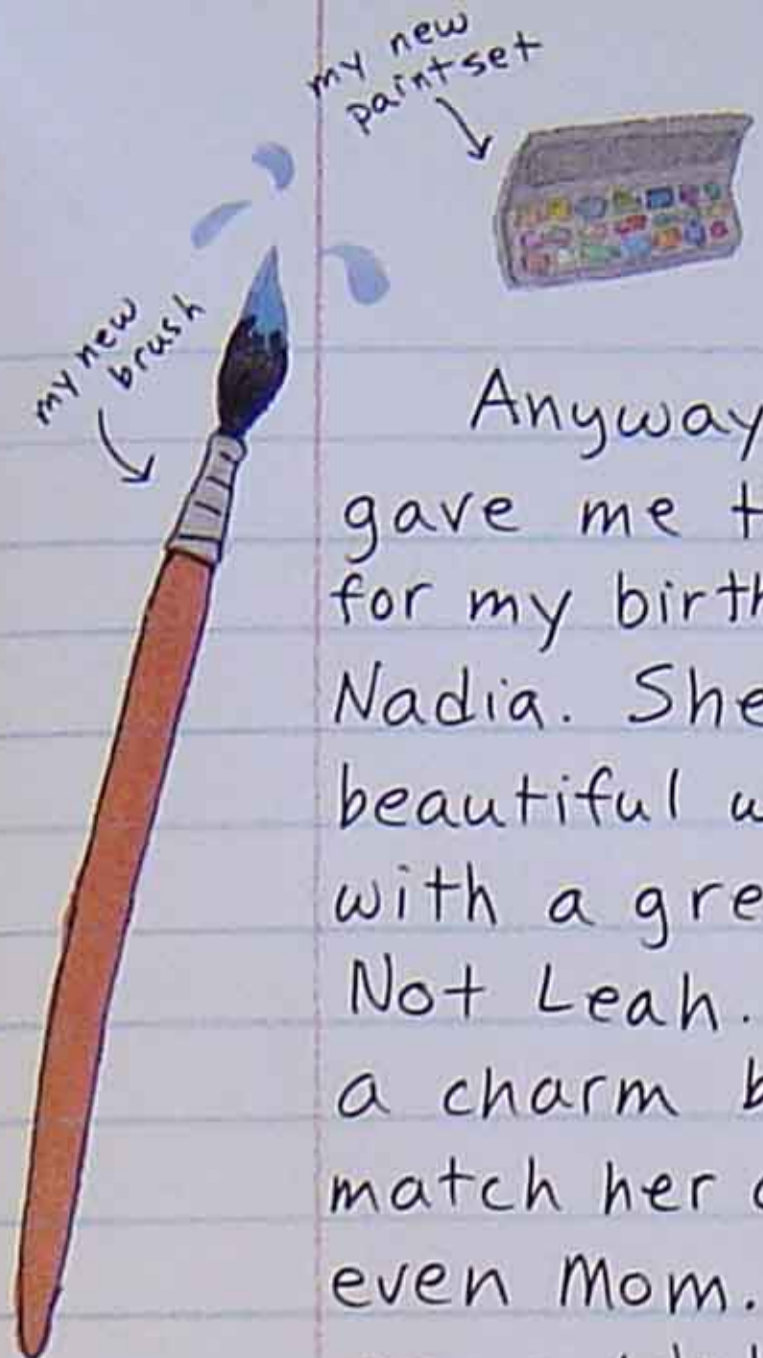 my new
paintset
my new
brush
Anyway
gave me t
for my birth
Nadia. She
beautiful w
with a gre
Not Leah.
a charm b
match her
even Mom.